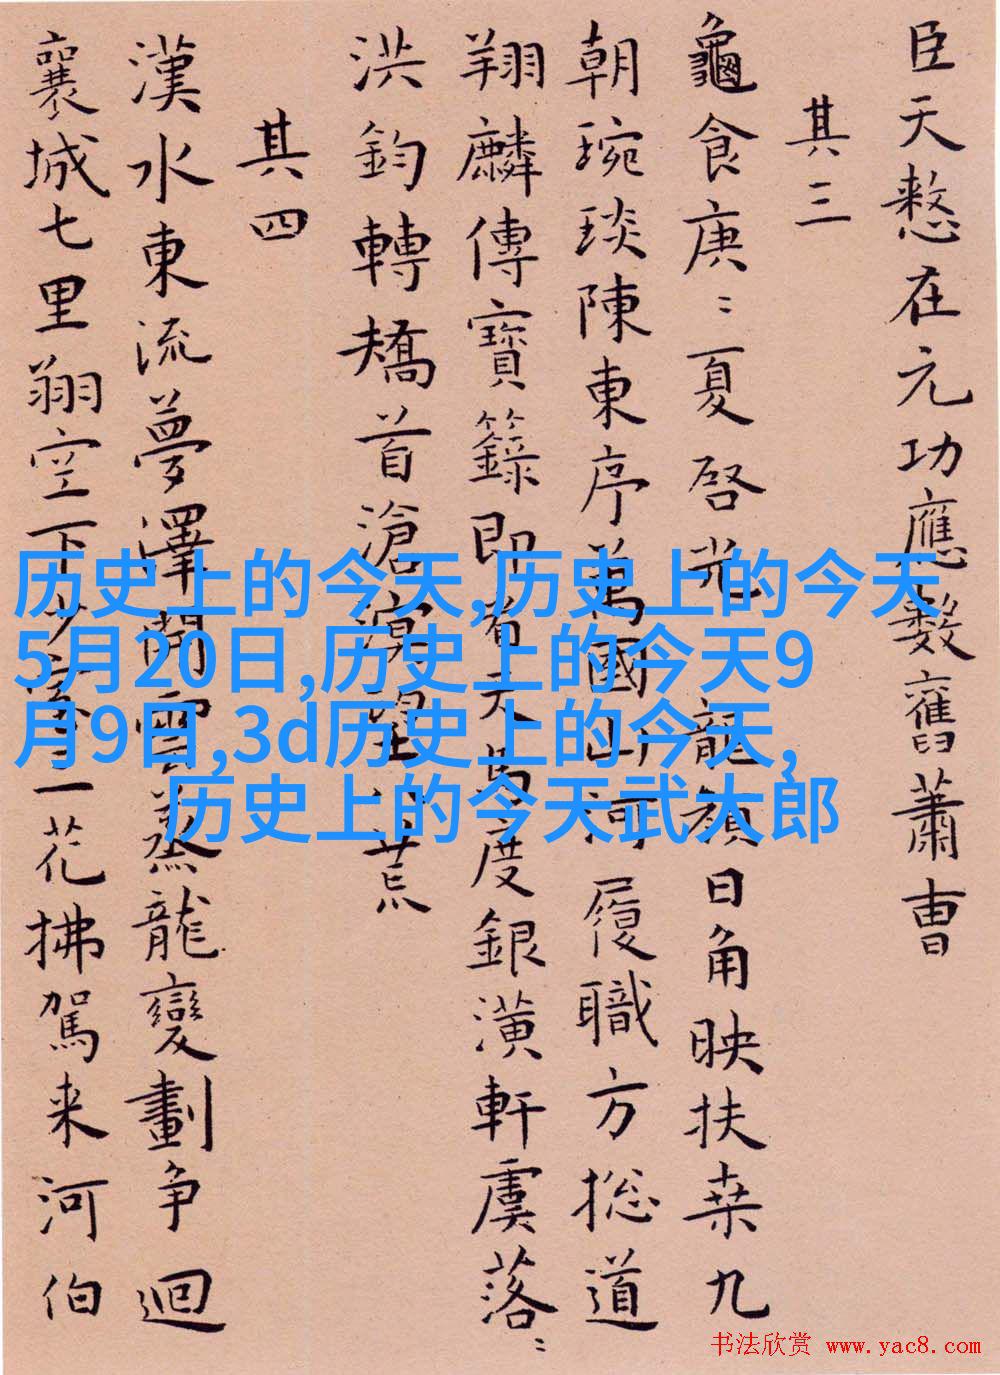 臣天憗在元功應數舊蕭曹
其三
龜食庚〻夏啓光龍顔日角映扶桒九
朝琬琰陳東序萬國山河履職方捴道
翔麟傳寶籙即看天馬度銀潢軒虞落〻
洪鈞轉矯首滄溟望八荒
其四
漢水東流夢澤開雲蒸龍變劃争迴
襄城七里翔空下少室三花拂駕来河伯
历史上的今天,历史上的今天
5月20日,历史上的今天9
月9日,3d历史上的今天,
历史上的今天武大郎
书法欣赏 www.yac8.com